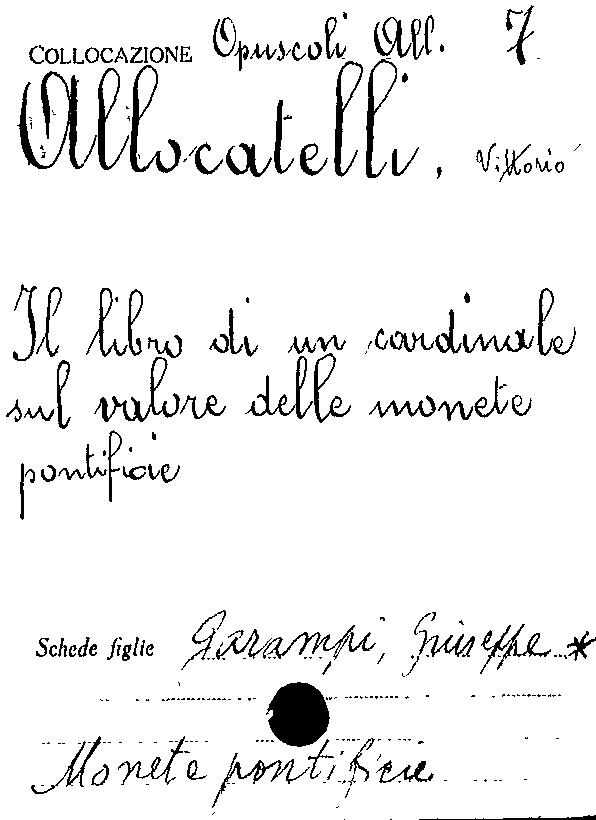 COLLOCAZIONE Opuscoli All. 7
Allocatelli, Vittorio
Il libro di un cardinale
sul valore delle monete
pontificie
Schede figlie Garampi, Giuseppe *
Monete pontificie